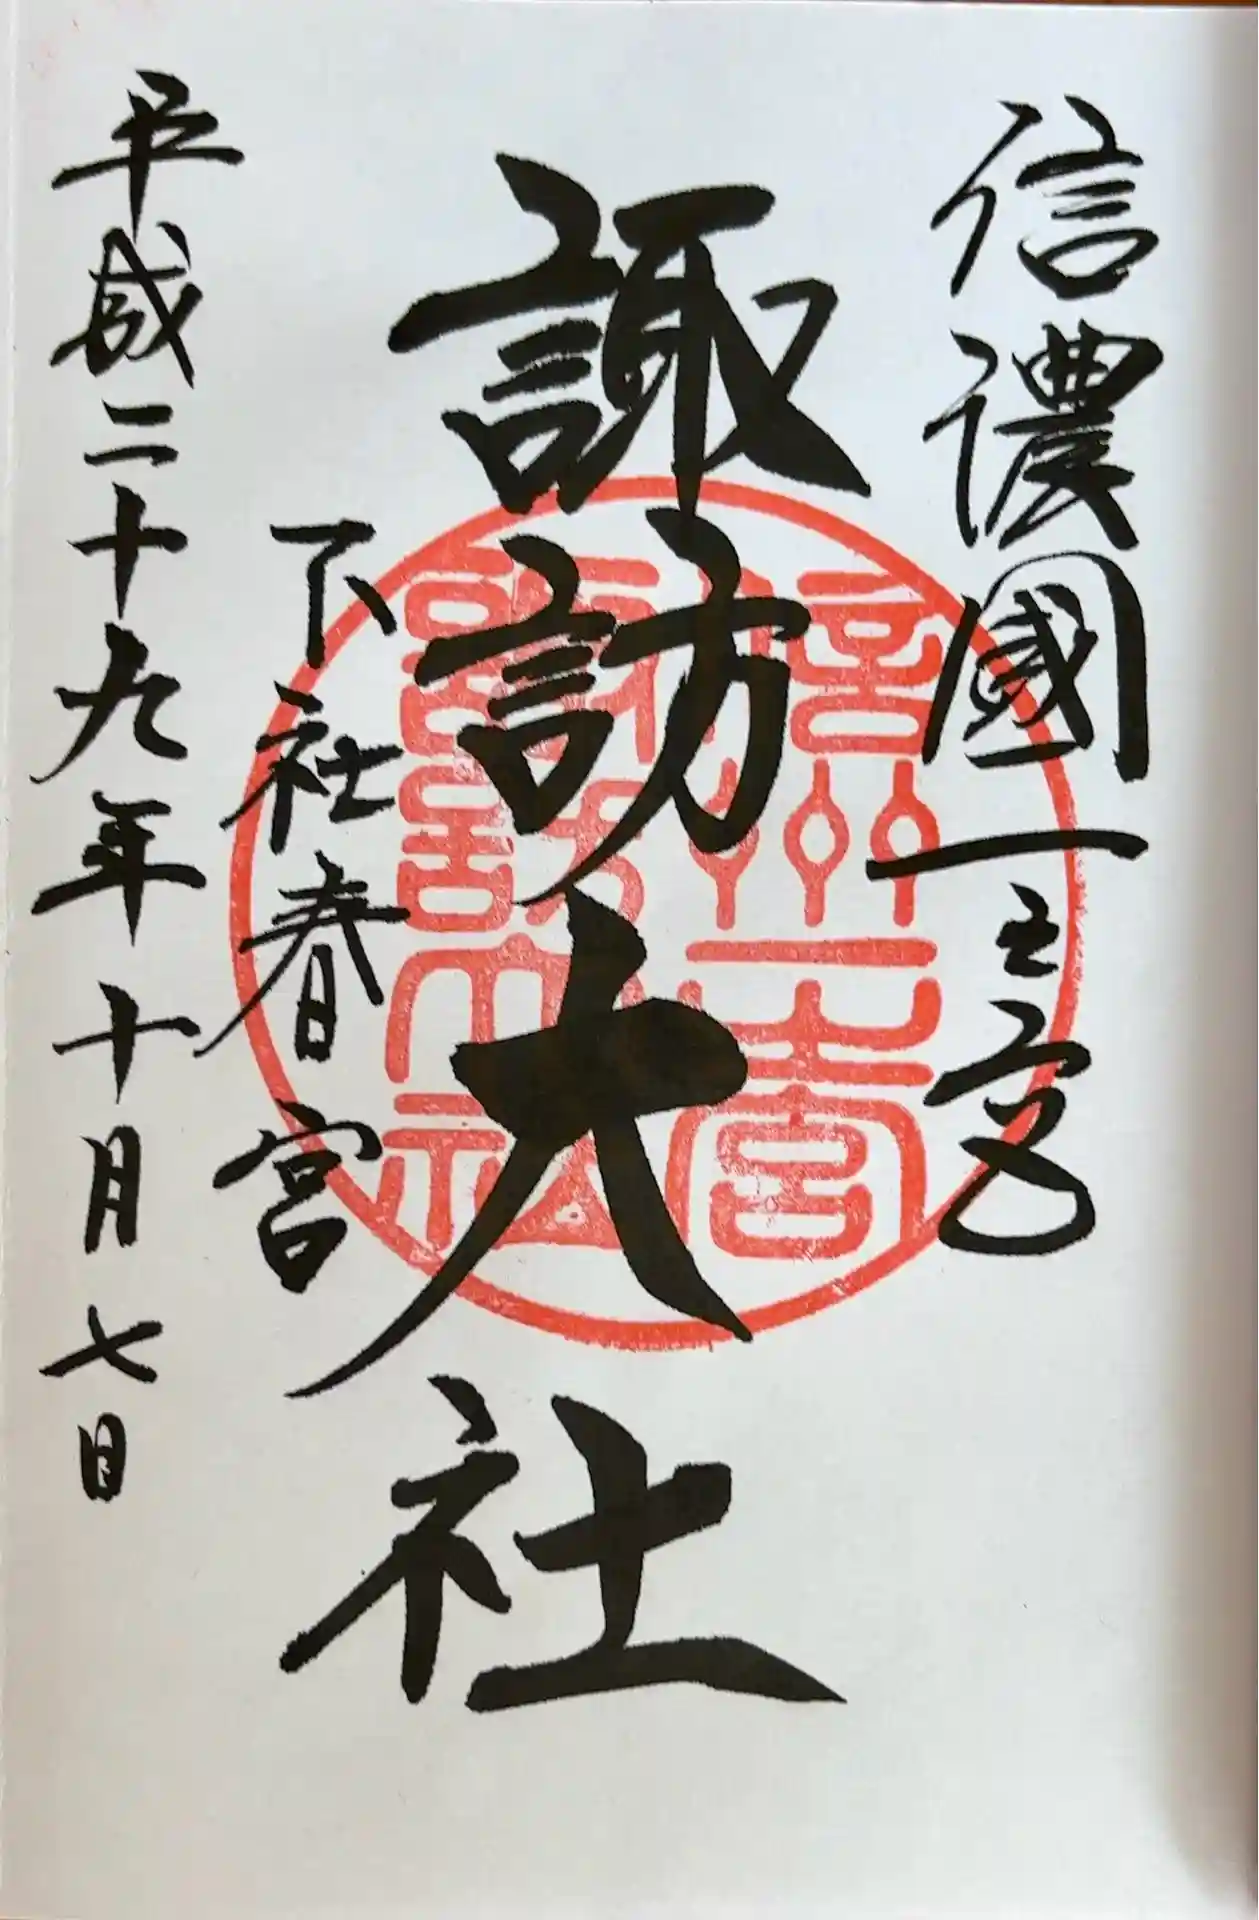 信濃國一之宮
諏訪大社
下社春宮
平成二十九年十月七日
信州一之宮
諏訪大社